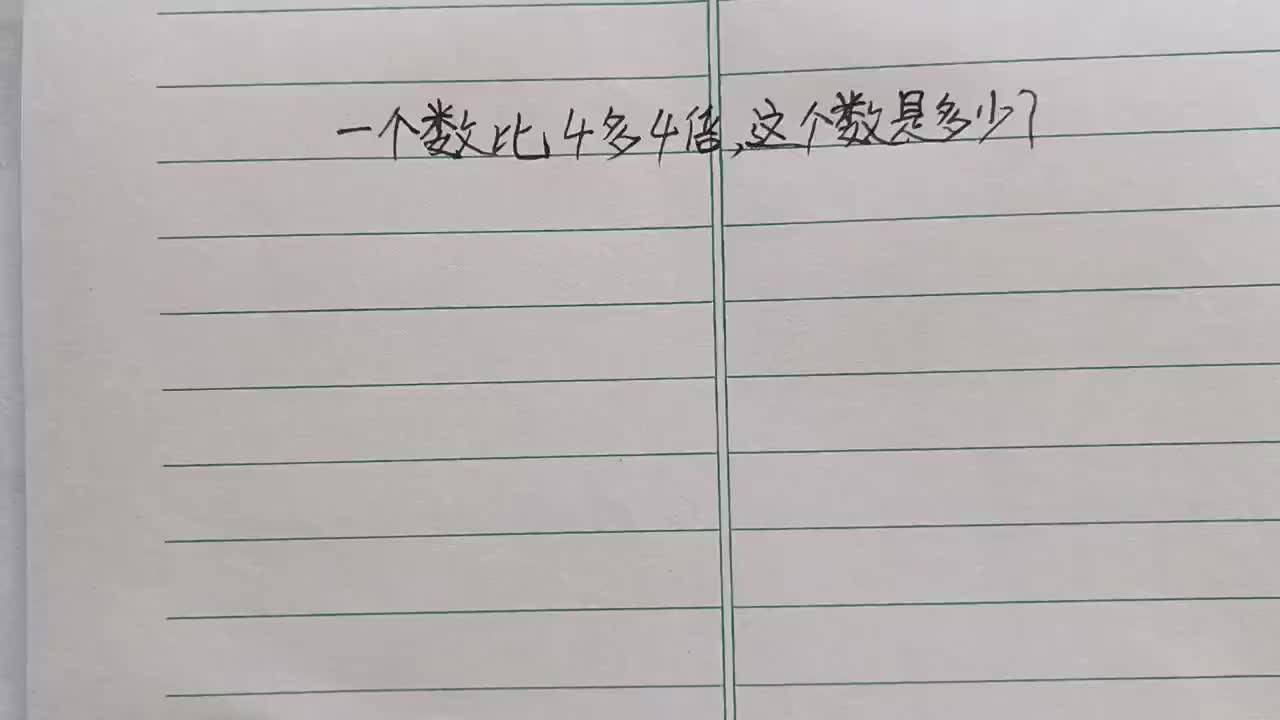 一个数比4多4倍,这个数是多少?